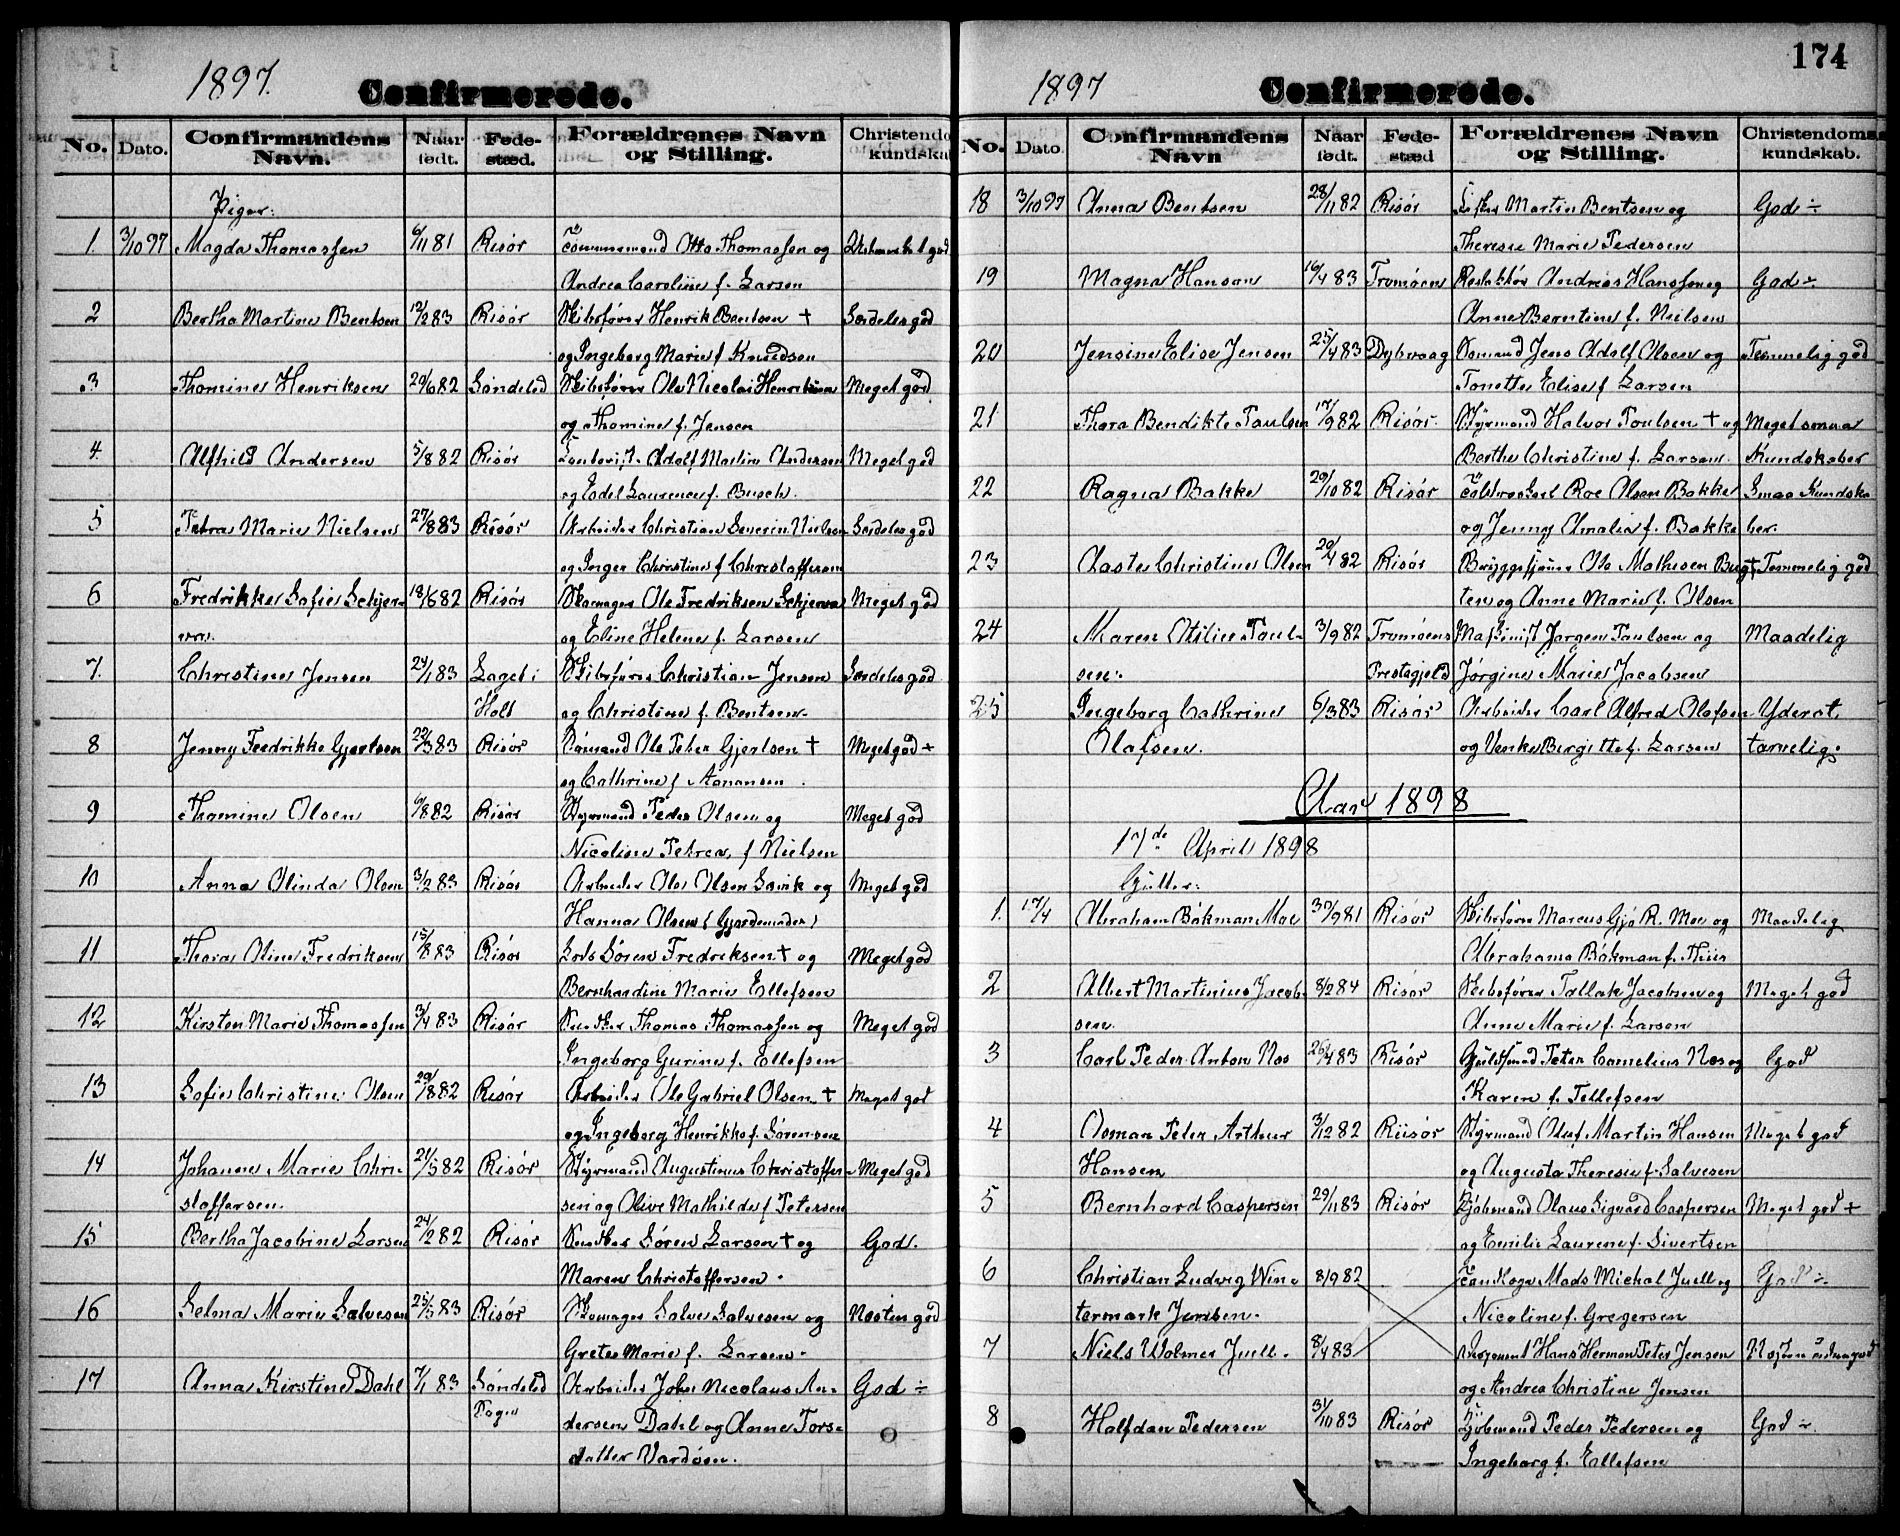 174
1897.
Confirmerede.
No. Dato. Confirmandens Navn. Naar født. Føde-stæd. Forældrenes Navn og Stilling. Christendo kundskab
Piger:
1. 3/10 97 Magda Thomassen 6/11 81 Risør Tømmermand Otto Thomassen og
Andrea Caroline f. Larsen
2 Bertha Martine Bentsen 12/2 83 Risør Skibsfører Henrik Bentsen + Særdeles god
og Ingeborg Marie f Knudsen
3 Thomine Henriksen 29/6 82 Søndeled Skibsfører Ole Nicolai Henriksen Meget god
og Thomine f. Jensen
4. Alfhild Andersen 5/8 82 Risør Adolf Martin Andersen Meget god
og Edel Laurence f. Busch.
5 Petra Marie Nielsen 27/8 83 Risør Arbeider Christian Severin Nielsen Særdeles god
og Inger Christine f Christoffersen
6 Fredrikke Sofie Schjer- 18/6 82 Risør Skomager Ole Fredriksen Schjerva Meget god
og Eline Helene f. Larsen
7. Christine Jensen 24/1 83 Laget i Skibsfører Christian Jensen Særdeles god
Holt og Christine f. Bentsen.
8 Jenny Fredrikke Gjertsen 22/3 83 Risør Sømand Ole Peter Gjertsen + Meget god +
og Cathrine f Aanonsen
9 Thomine Olsen 6/8 82 Risør Styrmand Peder Olsen og Meget god
Nicoline Petrea, f Nielsen
10 Anna Olinda Olsen 3/2 83 Risør Arbeider Ole Olsen Lovik og Meget god
Hanna Olsen (Gjordemoder)
11 Thora Oline Fredriksen 15/8 83 Risør Lods Søren Fredriksen + og Meget god
Bernhardine Marie Ellefsen
12 Kirsten Marie Thomassen 3/4 83 Risør Snedker Thomas Thomassen og Meget god
Ingeborg Gurine f. Ellefsen
13 Sofie Christine Olsen 29/8 82 Risør Arbeider Ole Gabriel Olsen + Meget god
og Ingeborg Henrikke f. Sørensen
14 Johanne Marie Chri- 21/5 82 Risør Styrmand Augustinus Christoffer- Meget god
stoffersen. sen og Olive Mathilde f Petersen
15 Bertha Jacobine Larsen 24/2 82 Risør Snedker Søren Larsen + og God.
Maren Christoffersen.
16 Selma Marie Salvesen 25/3 83 Risør Skomager Salve Salvesen og Næsten god
Grete Marie f. Larsen.
17 Anna Kirstine Dahl 7/1 83 Søndeled Arbeider John Nicolaus An- God ÷
dersen Dahl og Anne Tors-
datter Vardøen.
1897
Confirmerede.
No. Dato Confirmandens Navn Naar født. Føde-stæd Forældrenes Navn og Stilling. Christendoms-kundskab.
18 3/10 97 Anna Bentsen 28/11 82 Risør Martin Bentsen og God ÷
Therese Marie Pedersen
19 Magna Hanson 16/4 83 Tromøen Redaktør Andreas Hanssen og God ÷
Anne Berntine f. Nielsen
20 Jensine Elise Jensen 25/4 83 Dybvaag Sømand Jens Adolf Olsen og Temmelig god
Tonette Elise f Larsen
21 Thora Bendikte Paulsen 17/9 82 Risør. Styrmand Halvor Paulsen + og Meget smaa
Berthe Christine f. Larsen. Kundskaber
22 Ragna Bakke 29/10 82 Risør Toldopss Roe Olsen Bakke Smaa Kundska
og Jenny Amalia f. Bakke ber.
23 Aaste Christine Olsen 20/4 82 Risør Bryggesjauer Ole Mathisen Temmelig god
ten og Anne Marie f. Olsen
24 Maren Otilie Paul- 3/9 82 Tromøens Maskinist Jørgen Paulsen og Maadelig
sen. Prestegjeld Jørgine Marie Jacobsen
25 Ingeborg Cathrine 6/3 83 Risør Arbeider Carl Alfred Olafsen Yderst
Olafsen. og Venke Birgitte f. Larsen tarvelig.
Aar 1898
17de April 1898
Gutter:
1. 17/4 Abraham Bökman Moe 30/9 81 Risør Skibsfører Marcus Gjö R. Moe og Maadelig
Abrahama Bökman f. Thiis
2 Albert Martinius Jacob- 8/2 84 Risør Skibsfører Tallak Jacobsen og Meget god
sen. Anne Marie f. Larsen
3 Carl Peder Anton Næs 26/4 83 Risør Guldsmed Peter Cornelius Næs og God
Karen f. Tellefsen
4 Osman Peter Arthur 3/12 82 Riisør Styrmand Oluf Martin Hansen Meget god
Hansen og Augusta Theresie f. Salvesen
5 Bernhard Caspersen 29/11 83 Risør Kjøbmand Olaus Sigvard Caspersen Meget god +
og Emilie Laurene f. Sivertsen
6 Christian Ludvig Win- 8/9 82 Tandlæge Mads Michal Juell og God ÷
termark Jensen. Nicoline f. Gregersen
7 Niels Volmer Juell. 8/4 83 Hans Herman Peter Jensen
og Andrea Christine Jensen
8 Halfdan Pedersen 31/10 83 Risør Kjøbmand Peder Pedersen og God ÷
Ingeborg f. Ellefsen